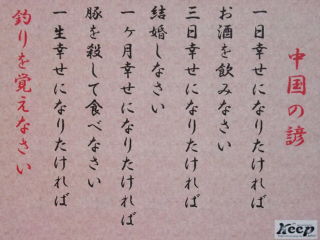 中国の諺
一日幸せになりたければ
お酒を飲みなさい
三日幸せになりたければ
結婚しなさい
一ヶ月幸せになりたければ
豚を殺して食べなさい
一生幸せになりたければ
釣りを覚えなさい
Keep